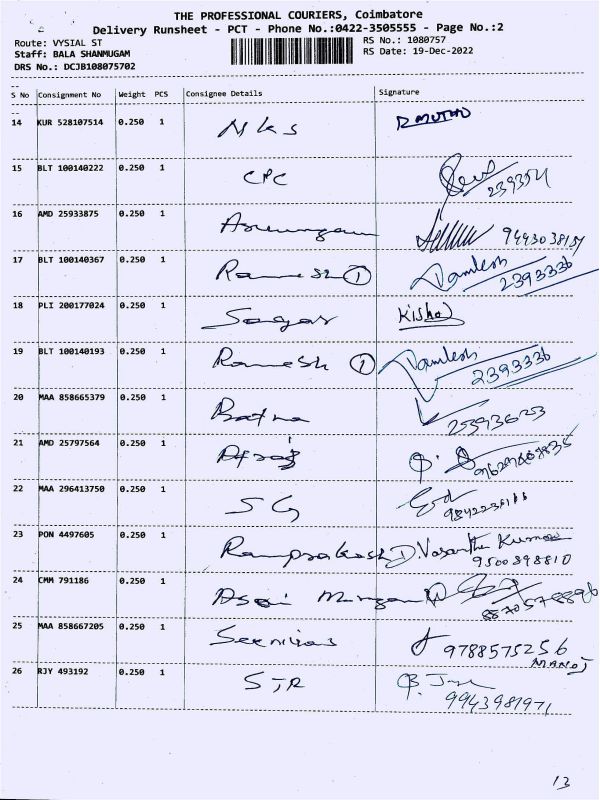 THE PROFESSIONAL COURIERS, Coimbatore
Delivery Runsheet - PCT - Phone No.:0422-3505555 - Page No.:2
Route: VYSIAL ST
RS No.: 1080757
Staff: BALA SHANMUGAM
RS Date: 19-Dec-2022
DRS No.: DCJB108075702
S No Consignment No Weight PCS Consignee Details Signature
14 KUR 528107514 0.250 1 NKS
15 BLT 100140222 0.250 1 CPC
239354
16 AMD 25933875 0.250 1 Arumugam
17 BLT 100140367 0.250 1 Ramesh 1 Damlesh
2393336
18 PLI 200177024 0.250 1 Sagar Kisho
19 BLT 100140193 0.250 1 Ramesh 1 Damlesh
2393336
20 MAA 858665379 0.250 1 Ratna
21 AMD 25797564 0.250 1
22 MAA 296413750 0.250 1 SG
23 PON 4497605 0.250 1 Ramprakash D. Vasantha Kumar
9500898810
24 CMM 791186 0.250 1
25 MAA 858667205 0.250 1 Seenivas 9788575256
MANOJ
26 RJY 493192 0.250 1 STR
9943981971
13